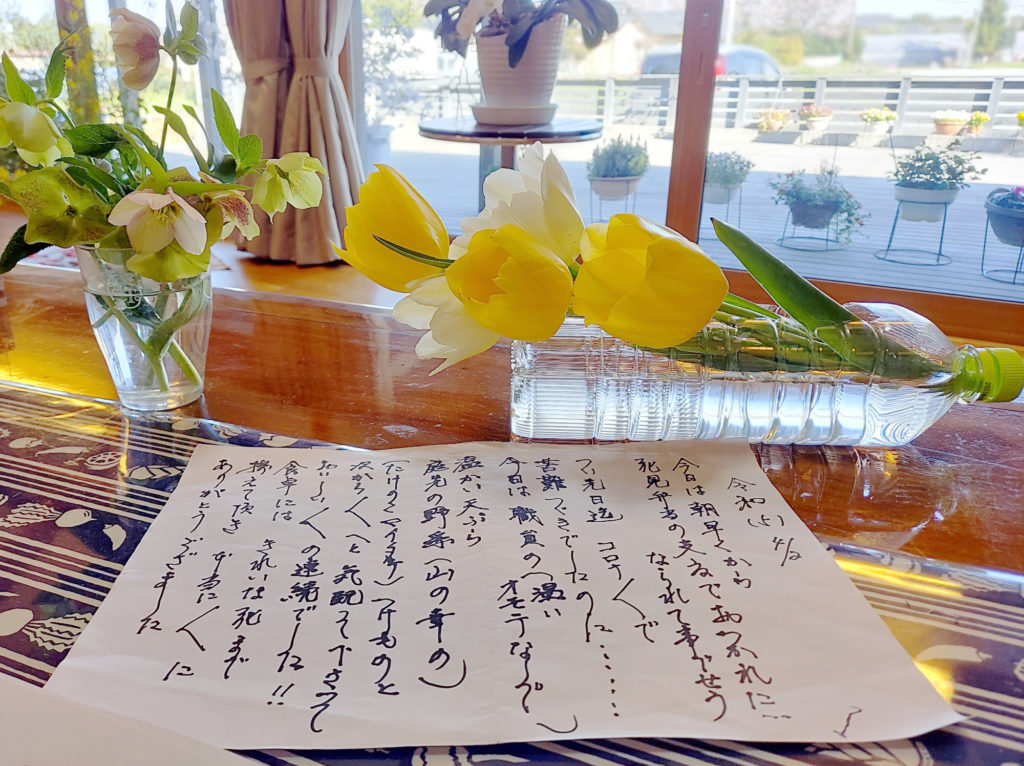 令和(5) 4/2
今日は朝早くから
花見弁当の支度でおつかれに…
なられて事でせう
つい先日迄 コロナ〱で
苦難つづきでしたのに......
今日は職員の(温い オモテなし)
温かい天ぷら
庭先の野菜(山の幸の)
(たけのこ つけものと
次から〱へと気配って下さって
おいしい〱の連続でした!!
食卓には きれいな花まで
揃えて頂き 本当に〱に
ありがとうございました